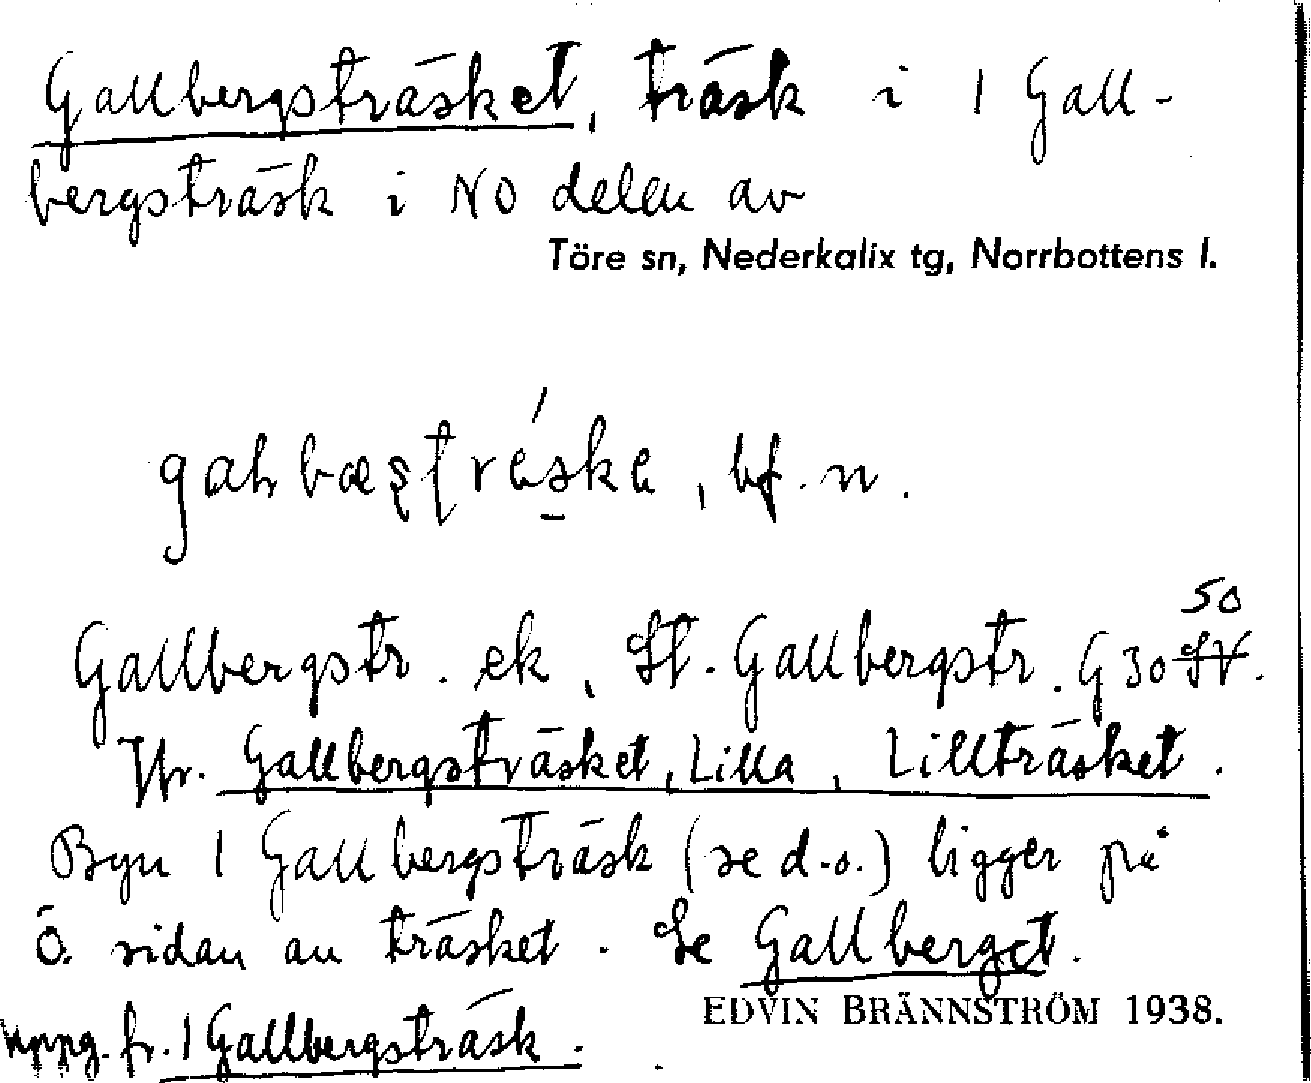 Gallbergsträsket, träsk i 1 Gall-
bergsträsk i NO delen av
Töre sn, Nederkalix tg, Norrbottens l.
bf. n.
50
Gallbergstr. ek, St. Gallbergstr. G 30 SV.
Jfr. Gallbergsträsket, Lilla, Lillträsket.
Byn 1 Gallbergsträsk (se d.o.) ligger på
Ö. sidan av träsket. Se Gallberget.
EDVIN BRÄNNSTRÖM 1938.
Uppg. fr. 1 Gallbergsträsk.